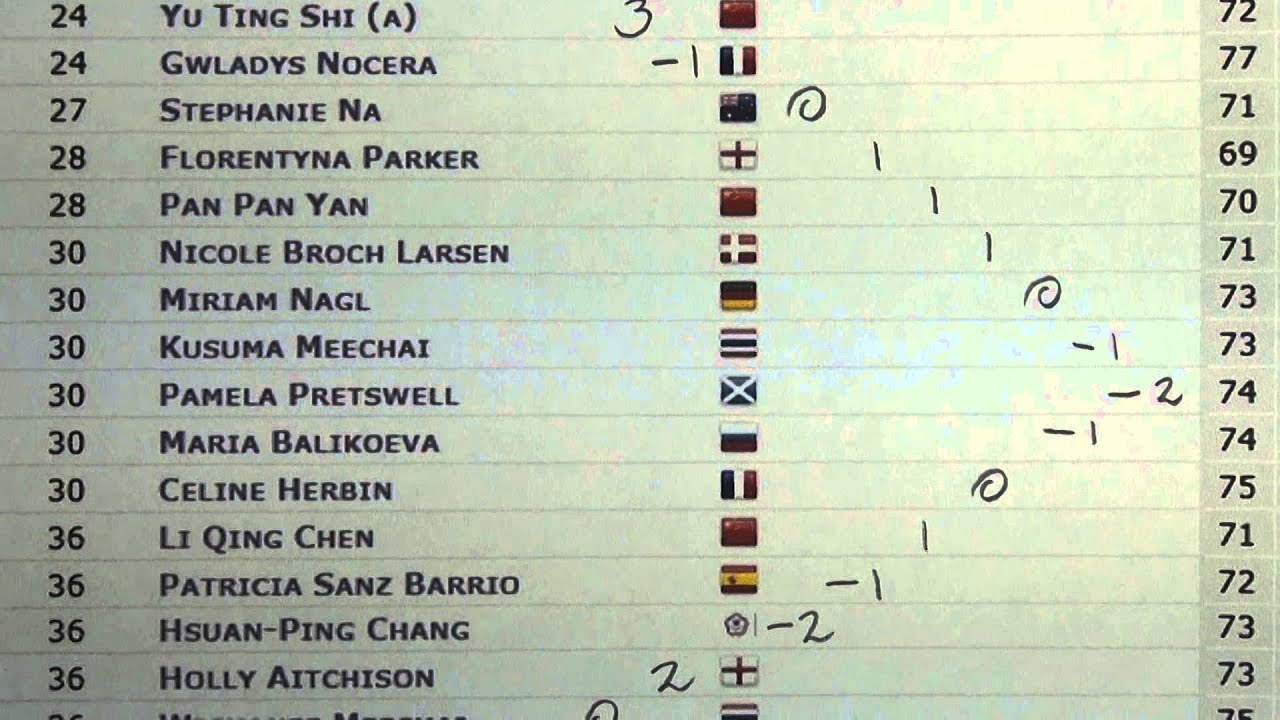 24 Yu Ting Shi (a) 3 72
24 Gwladys Nocera -1 77
27 Stephanie Na 0 71
28 Florentyna Parker 1 69
28 Pan Pan Yan 1 70
30 Nicole Broch Larsen 1 71
30 Miriam Nagl 0 73
30 Kusuma Meechai -1 73
30 Pamela Pretswell -2 74
30 Maria Balikoeva -1 74
30 Celine Herbin 0 75
36 Li Qing Chen 1 71
36 Patricia Sanz Barrio -1 72
36 Hsuan-Ping Chang -2 73
36 Holly Aitchison 2 73
36 0 75